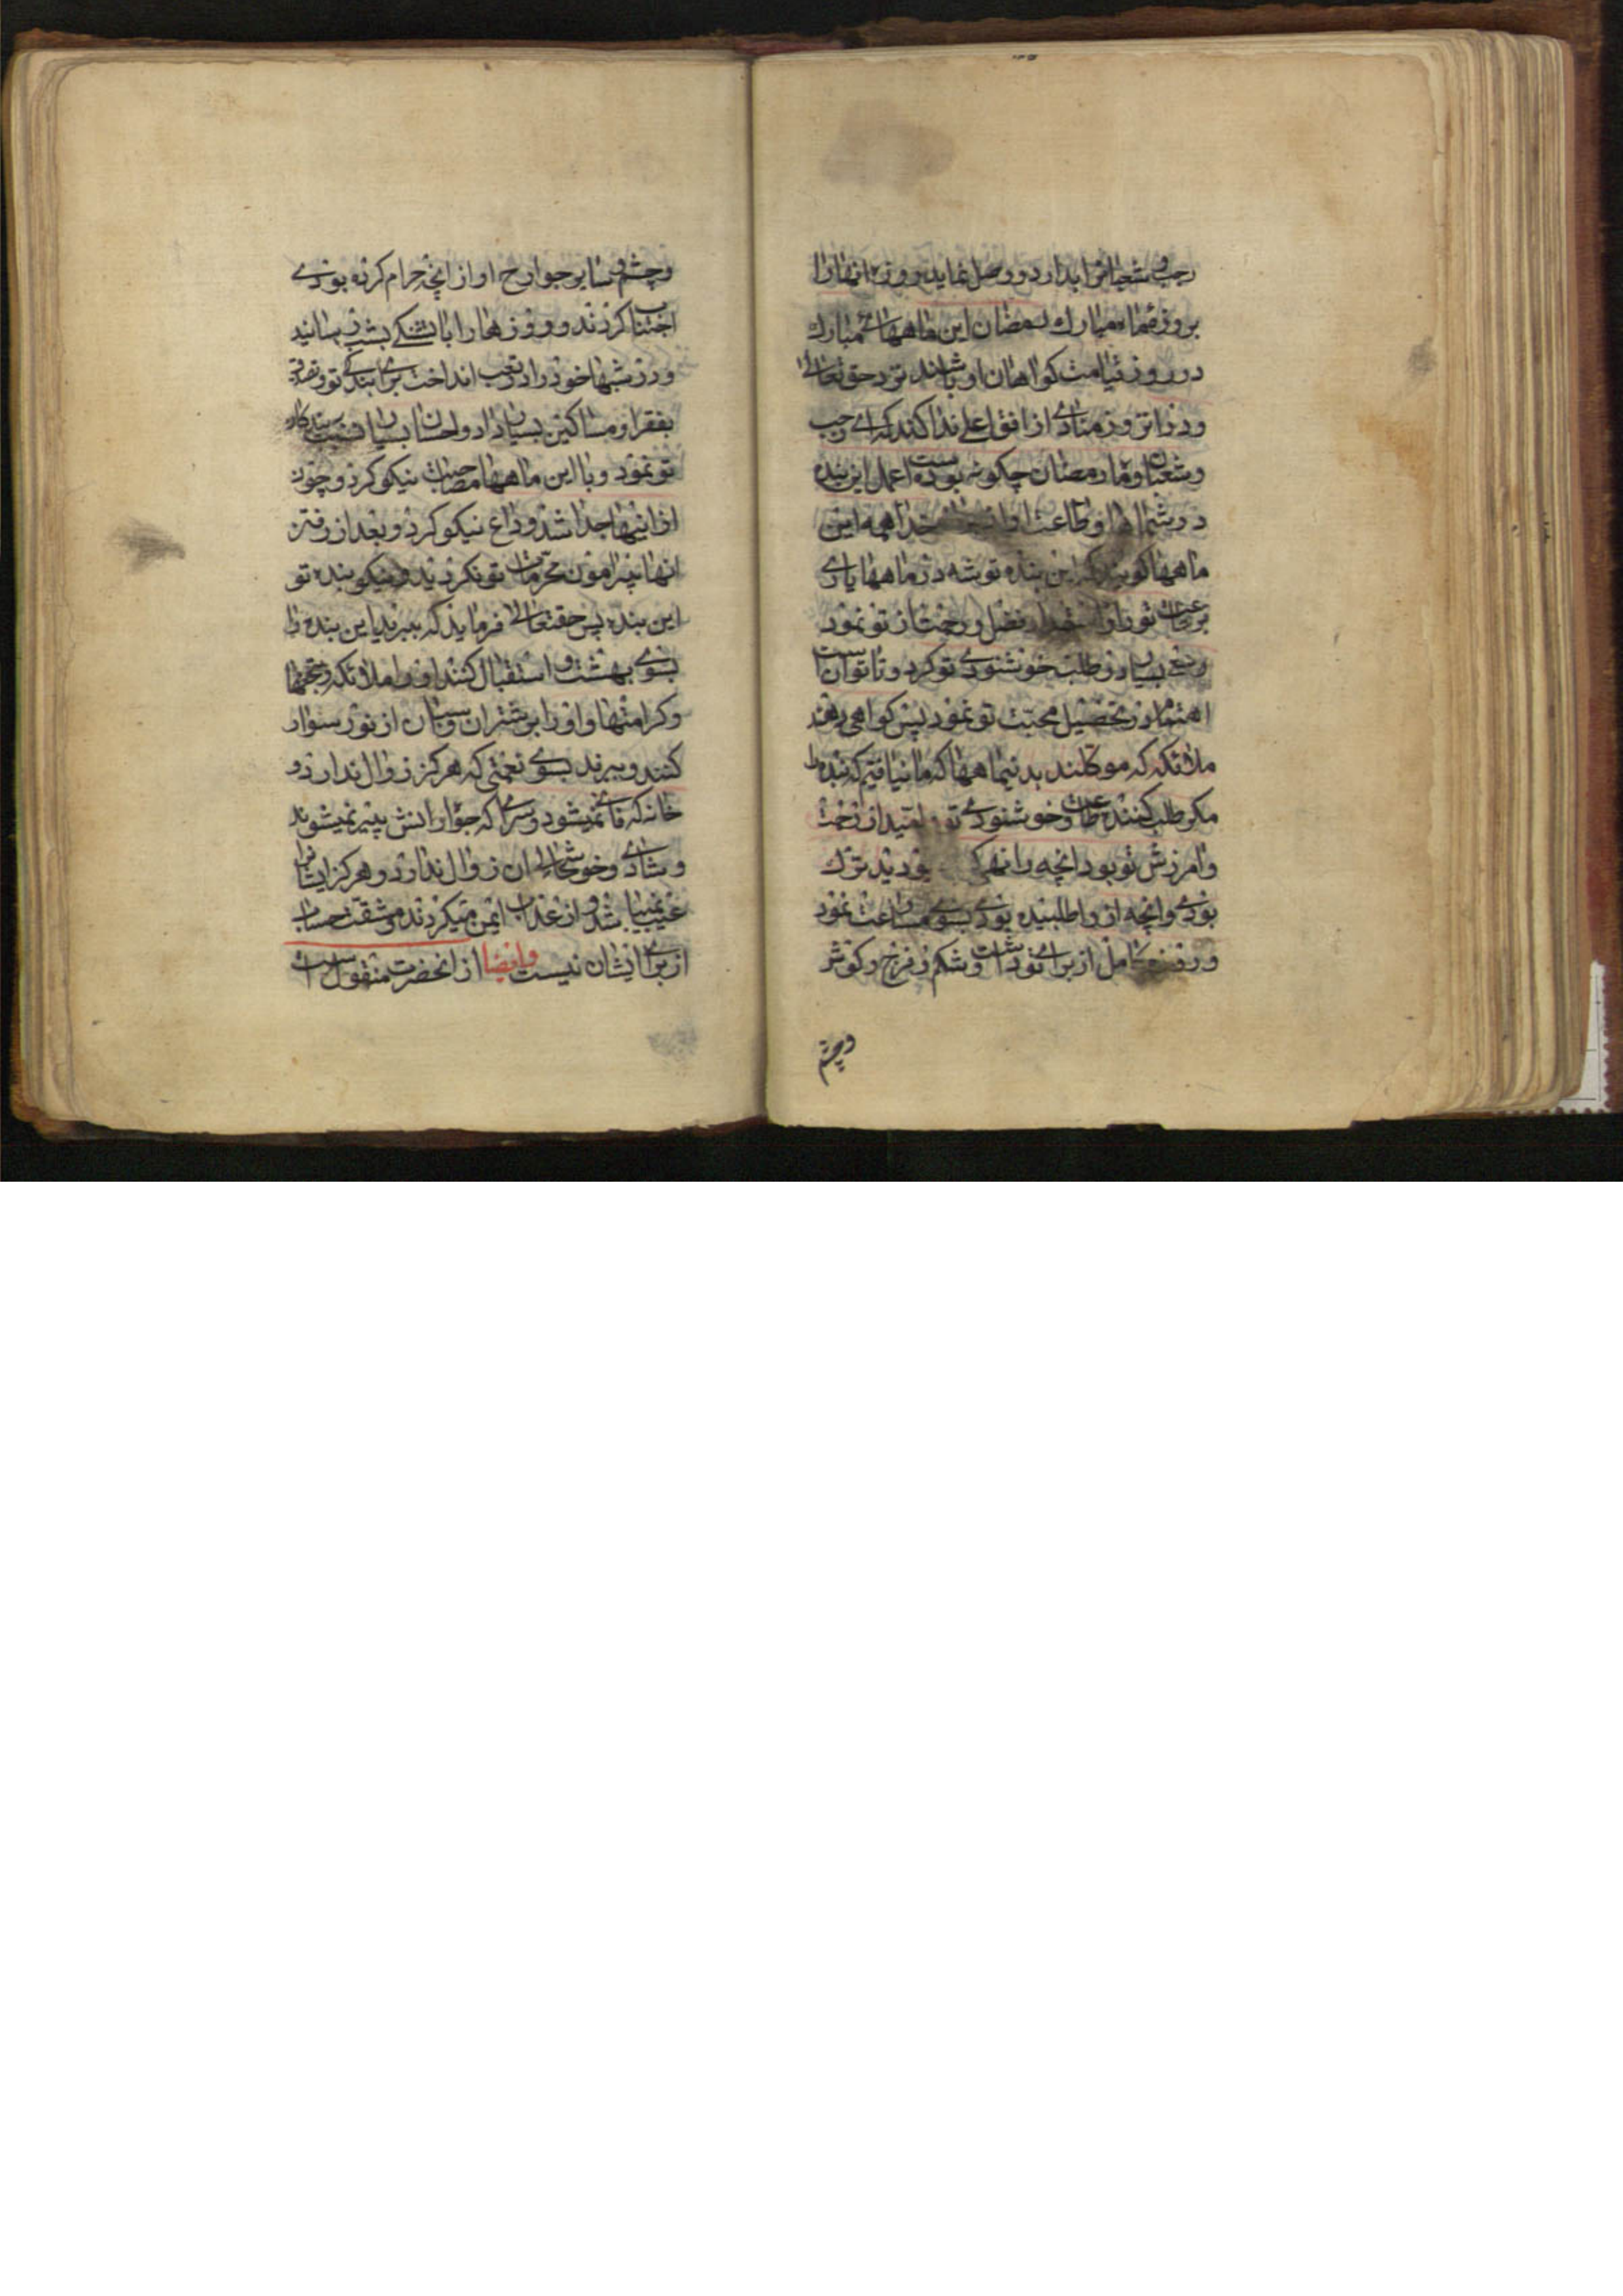 رجب و شعبانرا بدارد و وصل نماید روزه انهارا
بروزه ماه مبارك رمضان این ماههای مبارك
در روز قیامت کواهان او باشند نزد حق تعالی
و در انروز منادی از افق اعلی ندا کند که ای رجب
و شعبان و ماه رمضان چکونه بوده است اعمال این بنده
در شما و طاعت او خدا همه این
ماهها کویند که این بنده توشه در ماهها یاری
بر طاعت تو را از فضل و رحمت از تو نمود
و سعی بسیار در طلب خوشنودی تو کرد و تا توانست
اهتمام در تحصیل محبت تو نمود پس کواهی دهند
ملائکه که موکلند بدینماهها که ما نیافتیم که بنده را
مکر طلب کننده طاعت و خوشنودی تو امید از رحمت
و امرزش تو بود انچه را نهی بودی ترك
بودی و انچه از او طلبیده بودی بسوی مسارعت نمود
و روزه کامل از برای تو داشت و شکم و فرج و کوش
وچشم
و چشم و سایر جوارح او از انچه حرام کرده بودی
اجتناب کردند و روزها را با تشنکی بشب رسانید
و در شبها خود را در تعب انداخت برای بندکی تو و تصدق
بفقرا و مساکین بسیار داد و احسان بسیار نسبت ببندکان
تو نمود و با این ماهها مصاحبت نیکو کرد و چون
از اینها جدا شد وداع نیکو کرد و بعد از رفتن
انها پیرامون محرمات تو نکردید و نیکو بنده تو
این بنده پس حقتعالی فرماید که ببرید این بنده را
بسوی بهشت و استقبال کنند او را ملائکه بتحفها
و کرامتها و او را بر شتران و اسبان از نور سوار
کنند و ببرند بسوی نعمتی که هرکز زوال ندارد و
خانه که فانی نمیشود و سرای که جوارانش پیر نمیشوند
و شادی و خوشحالی ان زوال ندارد و هرکز ایشانرا
نمیباشد و از عذاب ایمن میکردند و مشقت حساب
از برای ایشان نیست وایضا از انحضرت منقول است